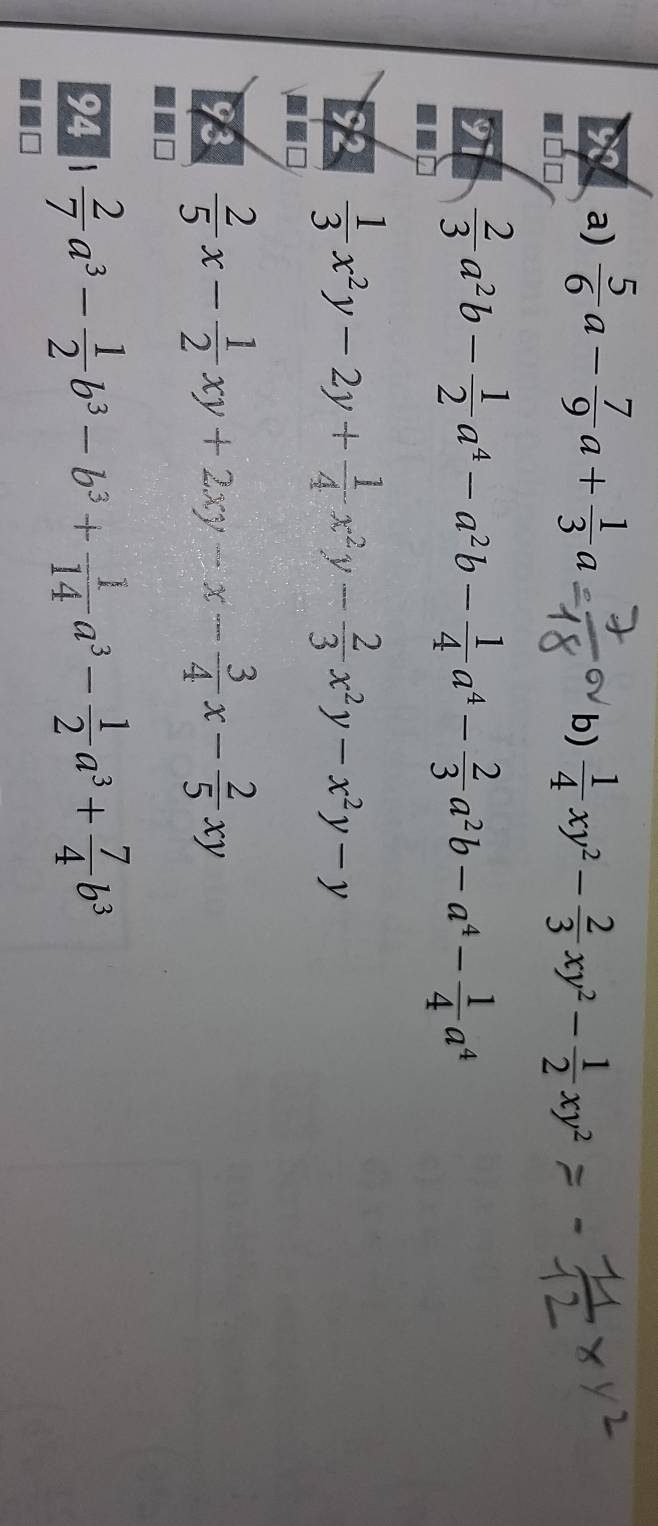 90 a) 5/6 a − 7/9 a + 1/3 a = 7/18 a b) 1/4 xy² − 2/3 xy² − 1/2 xy² = - 11/12 xy²
91 2/3 a²b − 1/2 a⁴ − a²b − 1/4 a⁴ − 2/3 a²b − a⁴ − 1/4 a⁴
92 1/3 x²y − 2y + 1/4 x²y − 2/3 x²y − x²y − y
93 2/5 x − 1/2 xy + 2xy − x − 3/4 x − 2/5 xy
94 2/7 a³ − 1/2 b³ − b³ + 1/14 a³ − 1/2 a³ + 7/4 b³